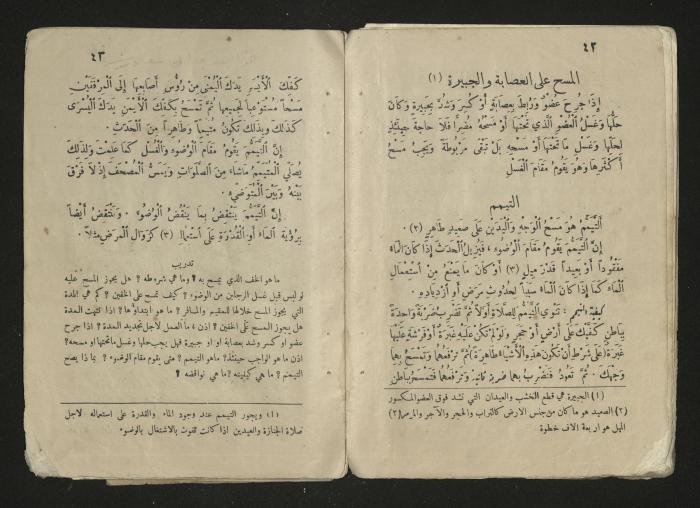 ٤٢
المسح على العصابة والجبيرة (١)
إِذَا جُرِحَ عُضْوٌ وَرُبِطَ بِعِصَابَةٍ أَوْ كُسِرَ وَشُدَّ بِجَبِيرَةٍ وَكَانَ
حَلُّهَا وَغَسْلُ الْعُضْوِ الَّذِي تَحْتَهَا أَوْ مَسْحُهُ مُضِرًّا فَلَا حَاجَةَ حِينَئِذٍ
لِحَلِّهَا وَغَسْلِ مَا تَحْتَهَا أَوْ مَسْحِهِ بَلْ تَبْقَى مَرْبُوطَةً وَيَجِبُ مَسْحُ
أَكْثَرِهَا وَهُوَ يَقُومُ مَقَامَ الْغَسْلِ
التيمم
اَلتَّيَمُّمُ هُوَ مَسْحُ الْوَجْهِ وَالْيَدَيْنِ عَلَى صَعِيدٍ طَاهِرٍ (٢) .
إِنَّ التَّيَمُّمَ يَقُومُ مَقَامَ الْوُضُوءِ ، فَيُزِيلُ الْحَدَثَ إِذَا كَانَ الْمَاءُ
مَفْقُودًا أَوْ بَعِيدًا قَدْرَ مِيلٍ (٣) أَوْ كَانَ مَا يَمْنَعُ مِنِ اسْتِعْمَالِ
الْمَاءِ كَمَا إِذَا كَانَ الْمَاءُ سَبَبًا لِحُدُوثِ مَرَضٍ أَوِ ازْدِيَادِهِ .
كيفية التيمم : تَنْوِي التَّيَمُّمَ لِلصَّلَاةِ أَوَّلًا ثُمَّ تَضْرِبُ ضَرْبَةً وَاحِدَةً
بِبَاطِنِ كَفَّيْكَ عَلَى أَرْضٍ أَوْ حَجَرٍ وَلَوْ لَمْ يَكُنْ عَلَيْهِ غُبْرَةٌ أَوْ فَرْشَةٍ عَلَيْهَا
غُبْرَةٌ (عَلَى شَرْطِ أَنْ تَكُونَ هَذِهِ الْأَشْيَاءُ طَاهِرَةً) ثُمَّ تَرْفَعُهَا وَتَمْسَحُ بِهِمَا
وَجْهَكَ . ثُمَّ تَعُودُ فَتَضْرِبُ بِهِمَا ضربة ثانية وَتَرْفَعُهُمَا فَتَمْسَحُ بِبَاطِنِ
(١) الجبيرة هي قطع الخشب والعيدان التي تشد فوق العضو المكسور
(٢) الصعيد هو ما كان من جنس الارض كالتراب والحجر والآجر والرمل (٣)
الميل هو اربعة الاف خطوة
٤٣
كَفِّكَ الْأَيْسَرِ يَدَكَ الْيُمْنَى مِنْ رُؤُسِ أَصَابِعِهَا إِلَى الْمِرْفَقَيْنِ
مَسْحًا مُسْتَوْعِبًا لِجَمِيعِهَا ثُمَّ تَمْسَحُ بِكَفِّكَ الْأَيْمَنِ يَدَكَ الْيُسْرَى
كَذَلِكَ وَبِذَلِكَ تَكُونُ مُتَيَمِّمًا وَطَاهِرًا مِنَ الْحَدَثِ .
إِنَّ التَّيَمُّمَ يَقُومُ مَقَامَ الْوُضُوءِ وَالْغُسْلِ كَمَا عَلِمْتَ وَلِذَلِكَ
يُصَلِّي الْمُتَيَمِّمُ مَا شَاءَ مِنَ الصَّلَوَاتِ وَيَمَسُّ الْمُصْحَفَ إِذْ لَا فَرْقَ
بَيْنَهُ وَبَيْنَ الْمُتَوَضِّيِ .
إِنَّ التَّيَمُّمَ يَنْتَقِضُ بِمَا يَنْقُضُ الْوُضُوءَ . وَيَنْتَقِضُ أَيْضًا
بِرُؤْيَةِ الْمَاءِ أَوِ الْقُدْرَةِ عَلَى اسْتِعْمَالِهِ (٣) كَزَوَالِ الْمَرَضِ مَثَلًا .
تدريب
ما هو الخف الذي يمسح به ؟ وما هي شروطه ؟ هل يجوز المسح عليه
لو لبس قبل غسل الرجلين من الوضوء ؟ كيف تمسح على الخفين ؟ كم هي المدة
التي يجوز المسح خلالها للمقيم والمسافر ؟ ما هو ابتداؤها ؟ اذا انتهت المدة
هل يجوز المسح على الخفين ؟ اذن ، ما العمل لأجل تجديد المدة ؟ اذا جرح
عضو او كسر وشد بعصابة او او جبيرة فهل يجب حلها وغسل ما تحتها او مسحه ؟
اذن ما هو الواجب حينئذ ؟ ما هو التيمم ؟ متى يقوم مقام الوضوء ؟ بما ذا يصح
التيمم ؟ ما هي كيفيته ؟ ما هي نواقضه ؟
(١) ويجوز التيمم عند وجود الماء والقدرة على استعماله لاجل
صلاة الجنازة والعيدين اذا كانت تفوت بالاشتغال بالوضوء .